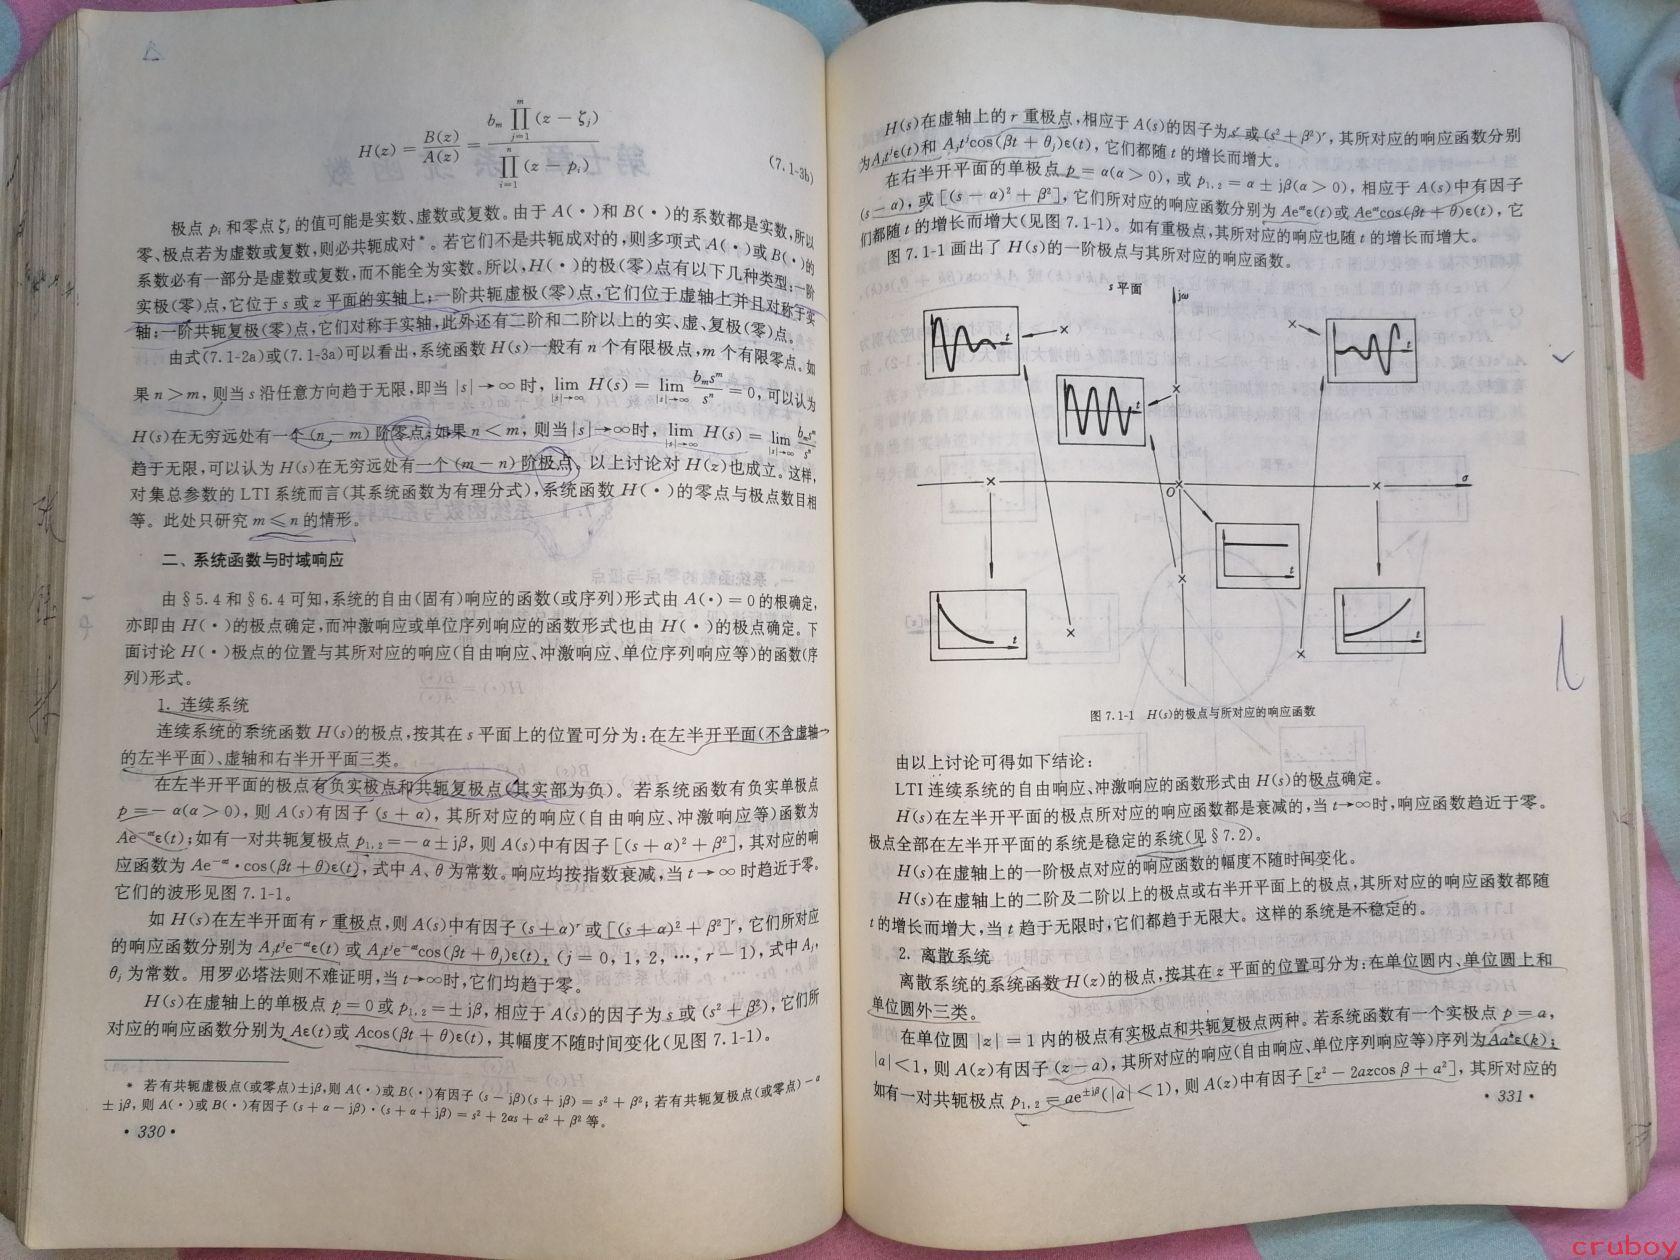 H(z) = B(z)/A(z) = b_m ∏_{j=1}^{m} (z − ζ_j) / ∏_{i=1}^{n} (z − p_i) (7.1-3b)
极点 p_i 和零点 ζ_i 的值可能是实数、虚数或复数。由于 A(·)和 B(·)的系数都是实数,所以
零、极点若为虚数或复数,则必共轭成对*。若它们不是共轭成对的,则多项式 A(·)或 B(·)的
系数必有一部分是虚数或复数,而不能全为实数。所以,H(·)的极(零)点有以下几种类型:一阶
实极(零)点,它位于 s 或 z 平面的实轴上;一阶共轭虚极(零)点,它们位于虚轴上并且对称于实
轴;一阶共轭复极(零)点,它们对称于实轴,此外还有二阶和二阶以上的实、虚、复极(零)点。
由式(7.1-2a)或(7.1-3a)可以看出,系统函数 H(s)一般有 n 个有限极点,m 个有限零点。如
果 n > m, 则当 s 沿任意方向趋于无限,即当 |s| → ∞ 时, lim_{|s|→∞} H(s) = lim_{|s|→∞} b_m s^m / s^n = 0, 可以认为
H(s)在无穷远处有一个 (n − m) 阶零点;如果 n < m, 则当|s|→∞时, lim_{|s|→∞} H(s) = lim_{|s|→∞} b_m s^m / s^n
趋于无限,可以认为 H(s)在无穷远处有一个 (m − n) 阶极点。以上讨论对 H(z)也成立。这样,
对集总参数的 LTI 系统而言(其系统函数为有理分式),系统函数 H(·)的零点与极点数目相
等。此处只研究 m ⩽ n 的情形。
二、系统函数与时域响应
由 § 5.4 和 § 6.4 可知,系统的自由(固有)响应的函数(或序列)形式由 A(·) = 0 的根确定,
亦即由 H(·)的极点确定,而冲激响应或单位序列响应的函数形式也由 H(·)的极点确定。下
面讨论 H(·)极点的位置与其所对应的响应(自由响应、冲激响应、单位序列响应等)的函数(序
列)形式。
1. 连续系统
连续系统的系统函数 H(s)的极点,按其在 s 平面上的位置可分为:在左半开平面(不含虚轴
的左半平面)、虚轴和右半开平面三类。
在左半开平面的极点有负实极点和共轭复极点(其实部为负)。若系统函数有负实单极点
p = − α(α > 0), 则 A(s)有因子 (s + α), 其所对应的响应(自由响应、冲激响应等)函数为
Ae^{−αt}ε(t);如有一对共轭复极点 p_{1,2} = − α ± jβ, 则 A(s)中有因子 [(s + α)² + β²], 其对应的响
应函数为 Ae^{−αt}·cos(βt + θ)ε(t), 式中 A、θ 为常数。响应均按指数衰减,当 t → ∞ 时趋近于零。
它们的波形见图 7.1-1。
如 H(s)在左半开面有 r 重极点,则 A(s)中有因子 (s + α)^r 或 [(s + α)² + β²]^r, 它们所对应
的响应函数分别为 A_j t^j e^{−αt}ε(t) 或 A_j t^j e^{−αt}cos(βt + θ_j)ε(t), (j = 0, 1, 2, …, r − 1), 式中 A_j、
θ_j 为常数。用罗必塔法则不难证明,当 t→∞时,它们均趋于零。
H(s)在虚轴上的单极点 p = 0 或 p_{1,2} = ± jβ, 相应于 A(s)的因子为 s 或 (s² + β²), 它们所
对应的响应函数分别为 Aε(t)或 Acos(βt + θ)ε(t), 其幅度不随时间变化(见图 7.1-1)。
* 若有共轭虚极点(或零点)±jβ,则 A(·)或 B(·)有因子 (s − jβ)(s + jβ) = s² + β²; 若有共轭复极点(或零点) − α
± jβ, 则 A(·)或 B(·)有因子 (s + α − jβ)·(s + α + jβ) = s² + 2αs + α² + β² 等。
· 330 ·
H(s)在虚轴上的 r 重极点,相应于 A(s)的因子为 s^r 或 (s² + β²)^r, 其所对应的响应函数分别
为A_j t^j ε(t)和 A_j t^j cos(βt + θ_j)ε(t), 它们都随 t 的增长而增大。
在右半开平面的单极点 p = α(α > 0), 或 p_{1,2} = α ± jβ(α > 0), 相应于 A(s)中有因子
(s − α), 或 [(s − α)² + β²], 它们所对应的响应函数分别为 Ae^{αt}ε(t)或 Ae^{αt}cos(βt + θ)ε(t), 它
们都随 t 的增长而增大(见图 7.1-1)。如有重极点,其所对应的响应也随 t 的增长而增大。
图 7.1-1 画出了 H(s)的一阶极点与其所对应的响应函数。
s 平面
jω
t
t
t
σ
O
t
t
t
图 7.1-1 H(s)的极点与所对应的响应函数
由以上讨论可得如下结论:
LTI 连续系统的自由响应、冲激响应的函数形式由 H(s)的极点确定。
H(s)在左半开平面的极点所对应的响应函数都是衰减的,当 t→∞时,响应函数趋近于零。
极点全部在左半开平面的系统是稳定的系统(见 § 7.2)。
H(s)在虚轴上的一阶极点对应的响应函数的幅度不随时间变化。
H(s)在虚轴上的二阶及二阶以上的极点或右半开平面上的极点,其所对应的响应函数都随
t 的增长而增大,当 t 趋于无限时,它们都趋于无限大。这样的系统是不稳定的。
2. 离散系统
离散系统的系统函数 H(z)的极点,按其在 z 平面的位置可分为:在单位圆内、单位圆上和
单位圆外三类。
在单位圆 |z| = 1 内的极点有实极点和共轭复极点两种。若系统函数有一个实极点 p = a,
|a| < 1, 则 A(z)有因子 (z − a), 其所对应的响应(自由响应、单位序列响应等)序列为Aa^kε(k);
如有一对共轭极点 p_{1,2} = ae^{±jβ}(|a| < 1), 则 A(z)中有因子 [z² − 2azcos β + a²], 其所对应的
· 331 ·
cruboy